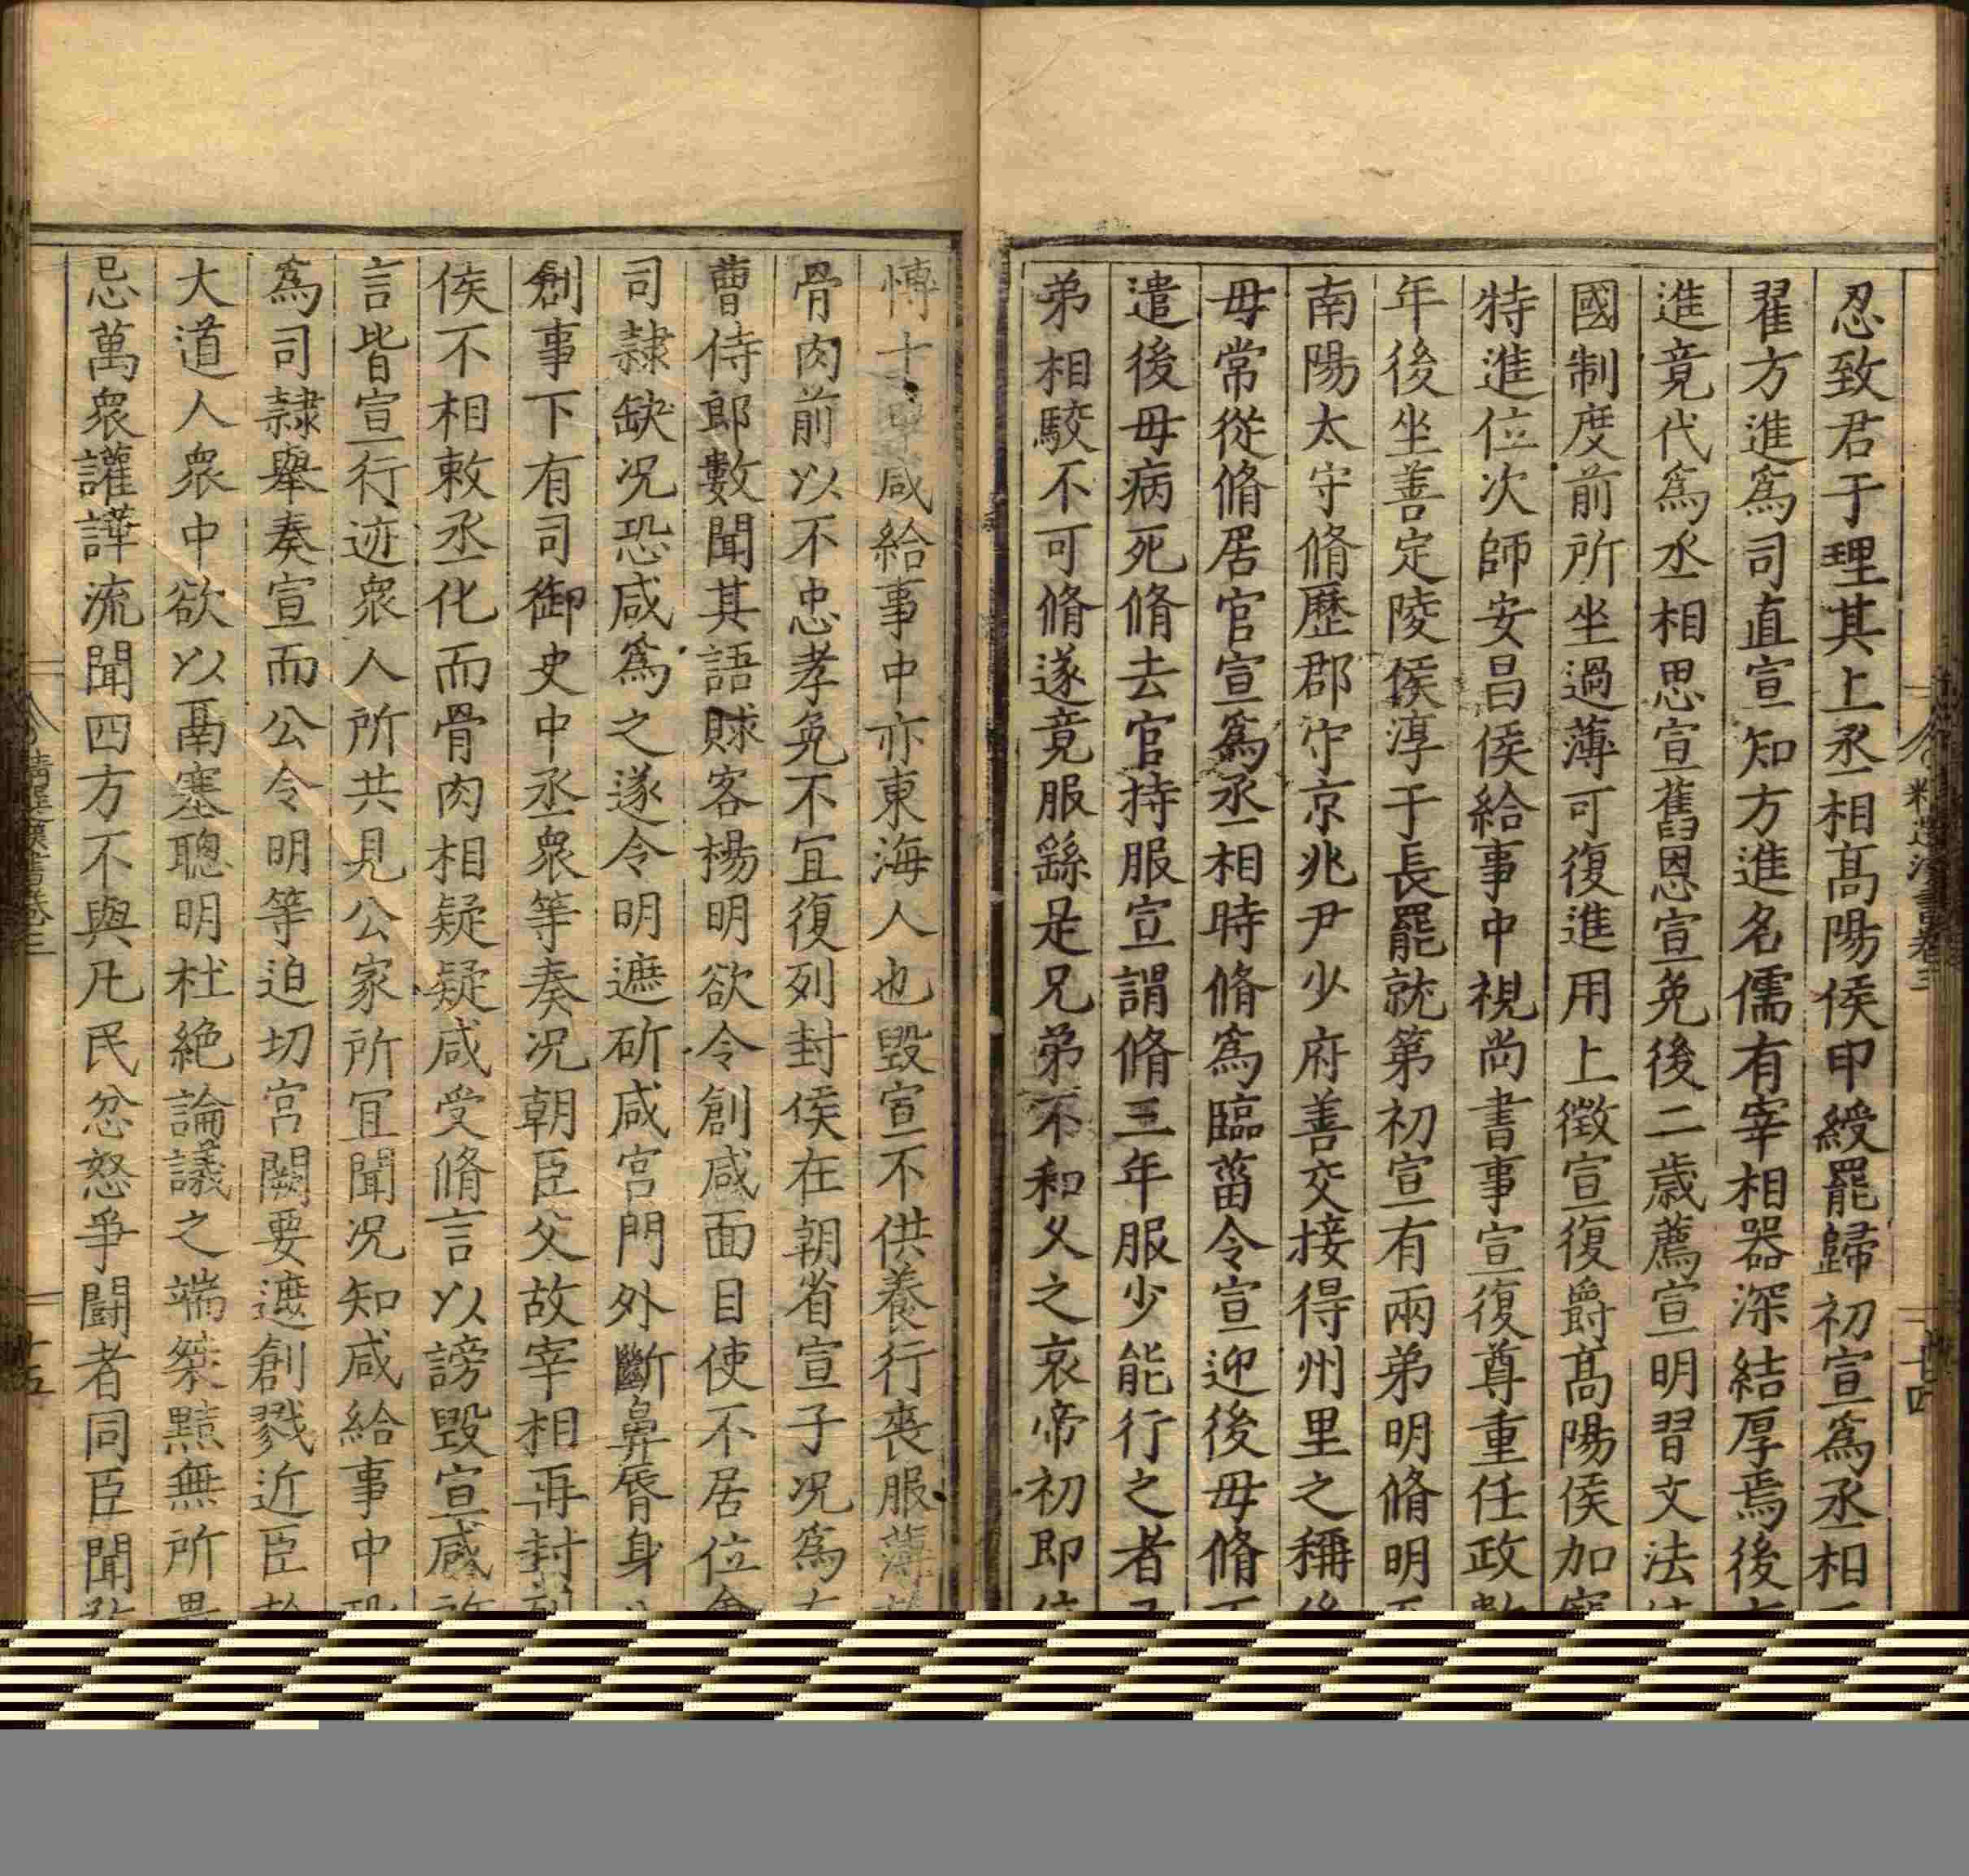 忍致君于理其上丞相高陽侯印綬罷歸初宣爲丞相
翟方進爲司直宣知方進名儒有宰相器深結厚焉後
進竟代爲丞相思宣舊恩宣免後二歲薦宣明習文法
國制度前所坐過薄可復進用上徵宣復爵高陽侯加
特進位次師安昌侯給事中視尚書事宣復尊重任政
年後坐善定陵侯淳于長罷就第初宣有兩弟明脩明
南陽太守脩歷郡守京兆尹少府善交接得州里之稱
毋常從脩居官宣爲丞相時脩爲臨菑令宣迎後毋脩
遣後毋病死脩去官持服宣謂脩三年服少能行之者
弟相駮不可脩遂竟服繇是兄弟不和乆之哀帝初即
愽士申咸給事中亦東海人也毀宣不供養行喪服薄
骨肉前以不忠孝免不宜復列封侯在朝省宣子况爲
曹侍郎數聞其語賕客楊明欲令創咸面目使不居位
司隷缺况恐咸爲之遂令明遮斫咸宮門外斷鼻脣身
創事下有司御史中丞衆等奏况朝臣父故宰相再封
侯不相敕丞化而骨肉相疑疑咸受脩言以謗毀宣咸
言皆宣行迹衆人所共見公家所宜聞况知咸給事中
爲司隷舉奏宣而公令明等迫切宮闕要遮創戮近臣
大道人衆中欲以鬲塞聰明杜絶論議之端桀黠無所
忌萬衆讙譁流聞四方不與凡民忿怒爭鬬者同臣聞